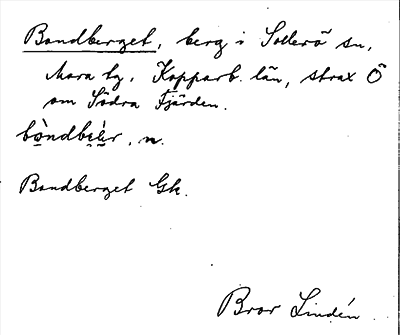 Bondberget, berg i Sollerö sn,
Mora tg, Kopparb. län, strax Ö
om Södra Fjärden.
bòndbèr, n.
Bondberget Gk.
Bror Lindén